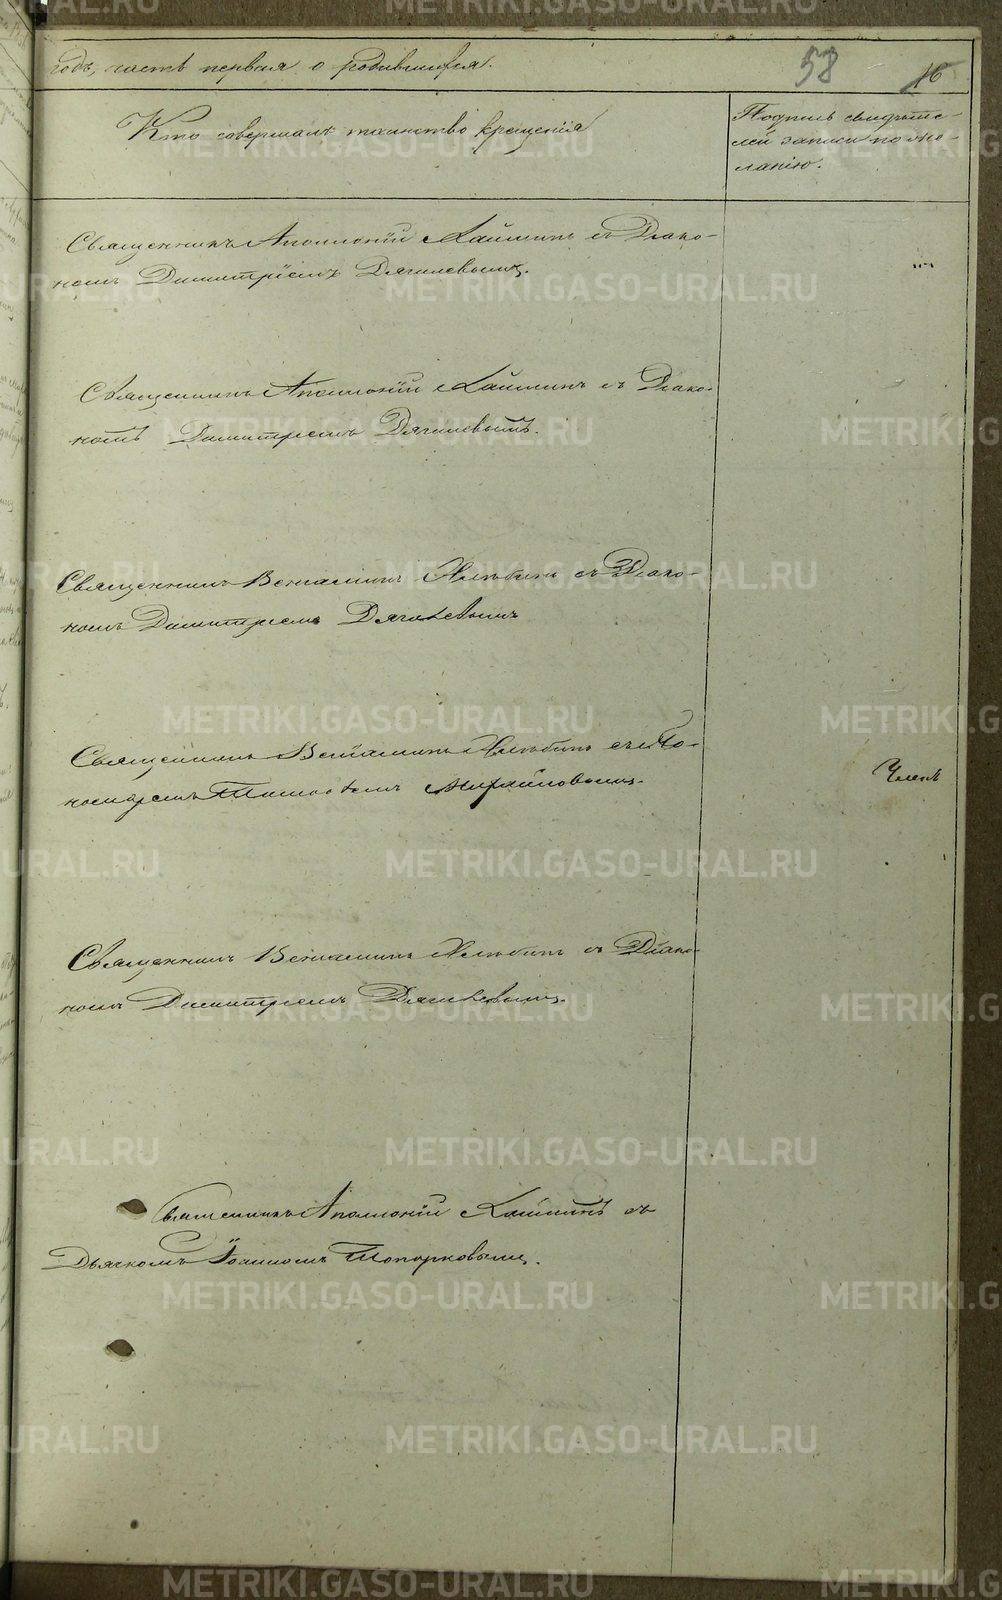 годъ, часть первая о родившихся.
58
16
Кто совершалъ таинство крещенія
Подпись свидѣте-
лей записи по же-
ланію.
Священникъ Аполлоній с Діако-
номъ Димитріемъ Дягилевымъ.
Священникъ Аполлоній съ Діако-
номъ Димитріемъ Дягилевымъ.
Священникъ Веніаминъ Хлѣбинъ съ Діако-
номъ Димитріемъ Дягилевымъ
Священникъ Веніаминъ Хлѣбинъ съ По-
номаремъ Михайловымъ.
Членъ
Священникъ Веніаминъ Хлѣбинъ съ Діако-
номъ Димитріемъ Дягилевымъ.
Священникъ Аполлоній съ
Дьячкомъ Іоанномъ Топорковымъ.
METRIKI.GASO-URAL.RU